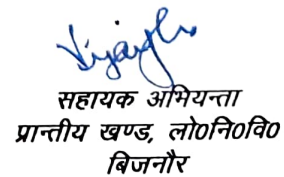 सहायक अभियन्ता
प्रान्तीय खण्ड, लो०नि०वि०
बिजनौर